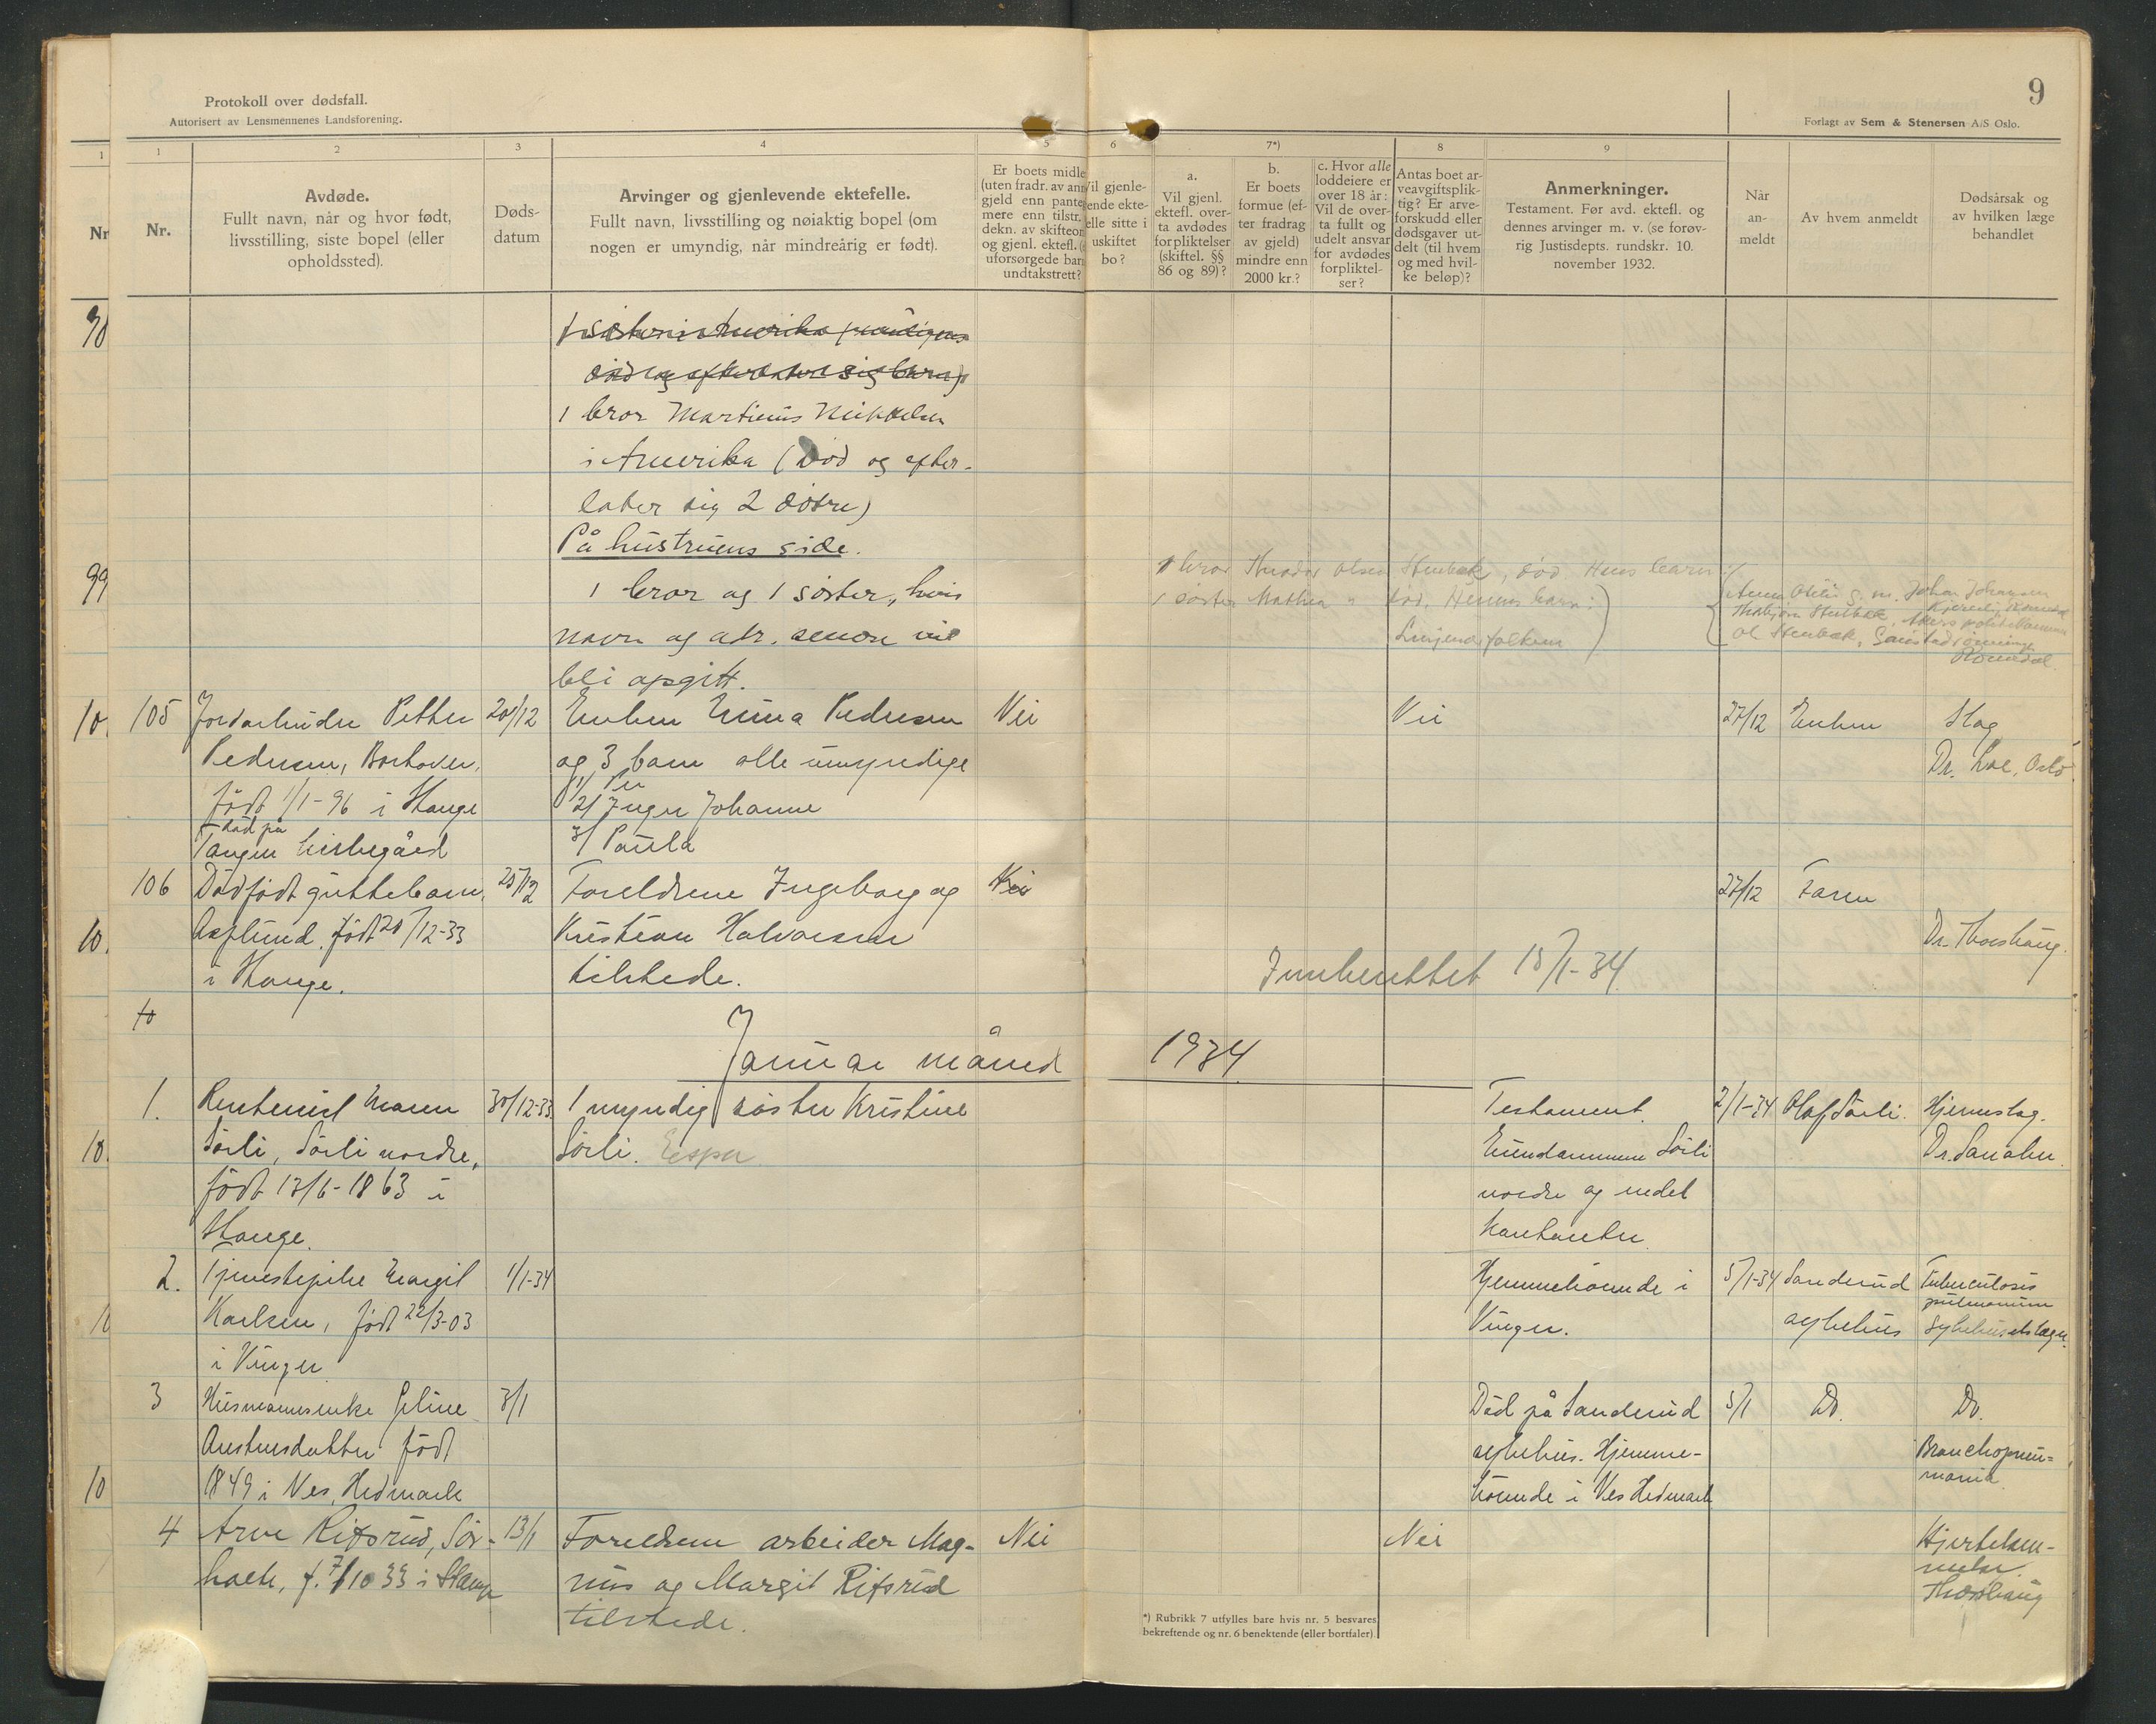 Protokoll over dødsfall.
Autorisert av Lensmennenes Landsforening.
9
Forlagt av Sem & Stenersen A/S Oslo.
1
1
2
3
4
5
6
7*)
8
9
Nr
Nr.
Avdøde.
Fullt navn, når og hvor født,
livsstilling, siste bopel (eller
opholdssted).
Døds-
datum
Arvinger og gjenlevende ektefelle.
Fullt navn, livsstilling og nøiaktig bopel (om
nogen er umyndig, når mindreårig er født).
Er boets midle
(uten fradr. av ann
gjeld enn pante
mere enn tilstr.
dekn. av skifteom
og gjenl. ektef.
uforsørgede bar
undtakstrett?
Vil gjenle-
ende ekte-
elle sitte i
uskiftet
bo?
a.
Vil gjenl.
ektefl. over-
ta avdødes
forpliktelser
(skiftel. §§
86 og 89)?
b.
Er boets
formue (ef-
ter fradrag
av gjeld)
mindre enn
2000 kr.?
c. Hvor alle
loddeiere er
over 18 år:
Vil de over-
ta fullt og
udelt ansvar
for avdødes
forpliktel-
ser?
Antas boet ar-
veavgiftsplik-
tig? Er arve-
forskudd eller
dødsgaver ut-
delt (til hvem
og med hvil-
ke beløp)?
Anmerkninger.
Testament. Før avd. ektefl. og
dennes arvinger m. v. (se forøv-
rig Justisdepts. rundskr. 10.
november 1932.
Når
an-
meldt
Av hvem anmeldt
Dødsårsak og
av hvilken læge
behandlet
1 bror Martinius Mikkelsen
i Amerika (død og efter-
later sig 2 døtre)
På hustruens side.
1 bror og 1 søster, hvis
navn og adr. senere vil
bli opgitt.
99
1 bror Theodor Olsen Stenbæk, død. Hans barn:
1 søster Mathea " død. Hennes barn:
105 Jordarbeider Petter 20/12 Enken Emma Pedersen Nei Nei 27/12 Enken Slag
Pedersen, og 3 barn alle umyndige Dr. Oslo.
født 1/1-96 i Stange 1/ Per
2/ Inger Johanne
død på
Tangen kirkegård 3/ Paula
106 Dødfødt guttebarn, 20/12 Foreldrene Ingeborg og Nei 27/12 Faren
Asplund. født 20/12-33 Kristian Halvorsen Dr. Thorshaug.
i Stange. tilstede.
Innberettet 15/1-34.
Januar måned 1934
1. Rentenist Maren 30/12-33 1 myndig søster Kristine Testament. 2/1-34 Olaf Sørli. Hjerneslag.
Sørli, Sørli nordre, Sørli. Espa Eiendommen Sørli
født 13/6-1863 i nordre og endel
Stange. kontanter.
2. Tjenestepike Margit 1/1-34 Hjemmehørende i 5/1-34 Sanderud Tuberculosis
pulmonum
Karlsen, født 22/3-03 Vinger. sykehus Sykehusets læge.
i Vinger
3 Husmannsenke Eline 3/1 Død på Sanderud 5/1 Do. Do.
født sykehus. Hjemme- Bronchopneu-
monia
1849 i Nes, Hedmark hørende i Nes Hedmark
4 Arve Ritsrud, Sør- 13/1 Foreldrene arbeider Mag- Nei Nei Hjertelam-
melse.
holte, f. 7/10 33 i Stange nus og Margit Ritsrud Thorshaug
tilstede.
*) Rubrikk 7 utfylles bare hvis nr. 5 besvares
bekreftende og nr. 6 benektende (eller bortfaler).